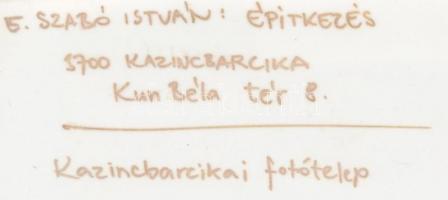 E. SZABÓ ISTVÁN: ÉPÍTKEZÉS
3700 KAZINCBARCIKA
Kun Béla tér 8.
Kazincbarcikai fotótelep